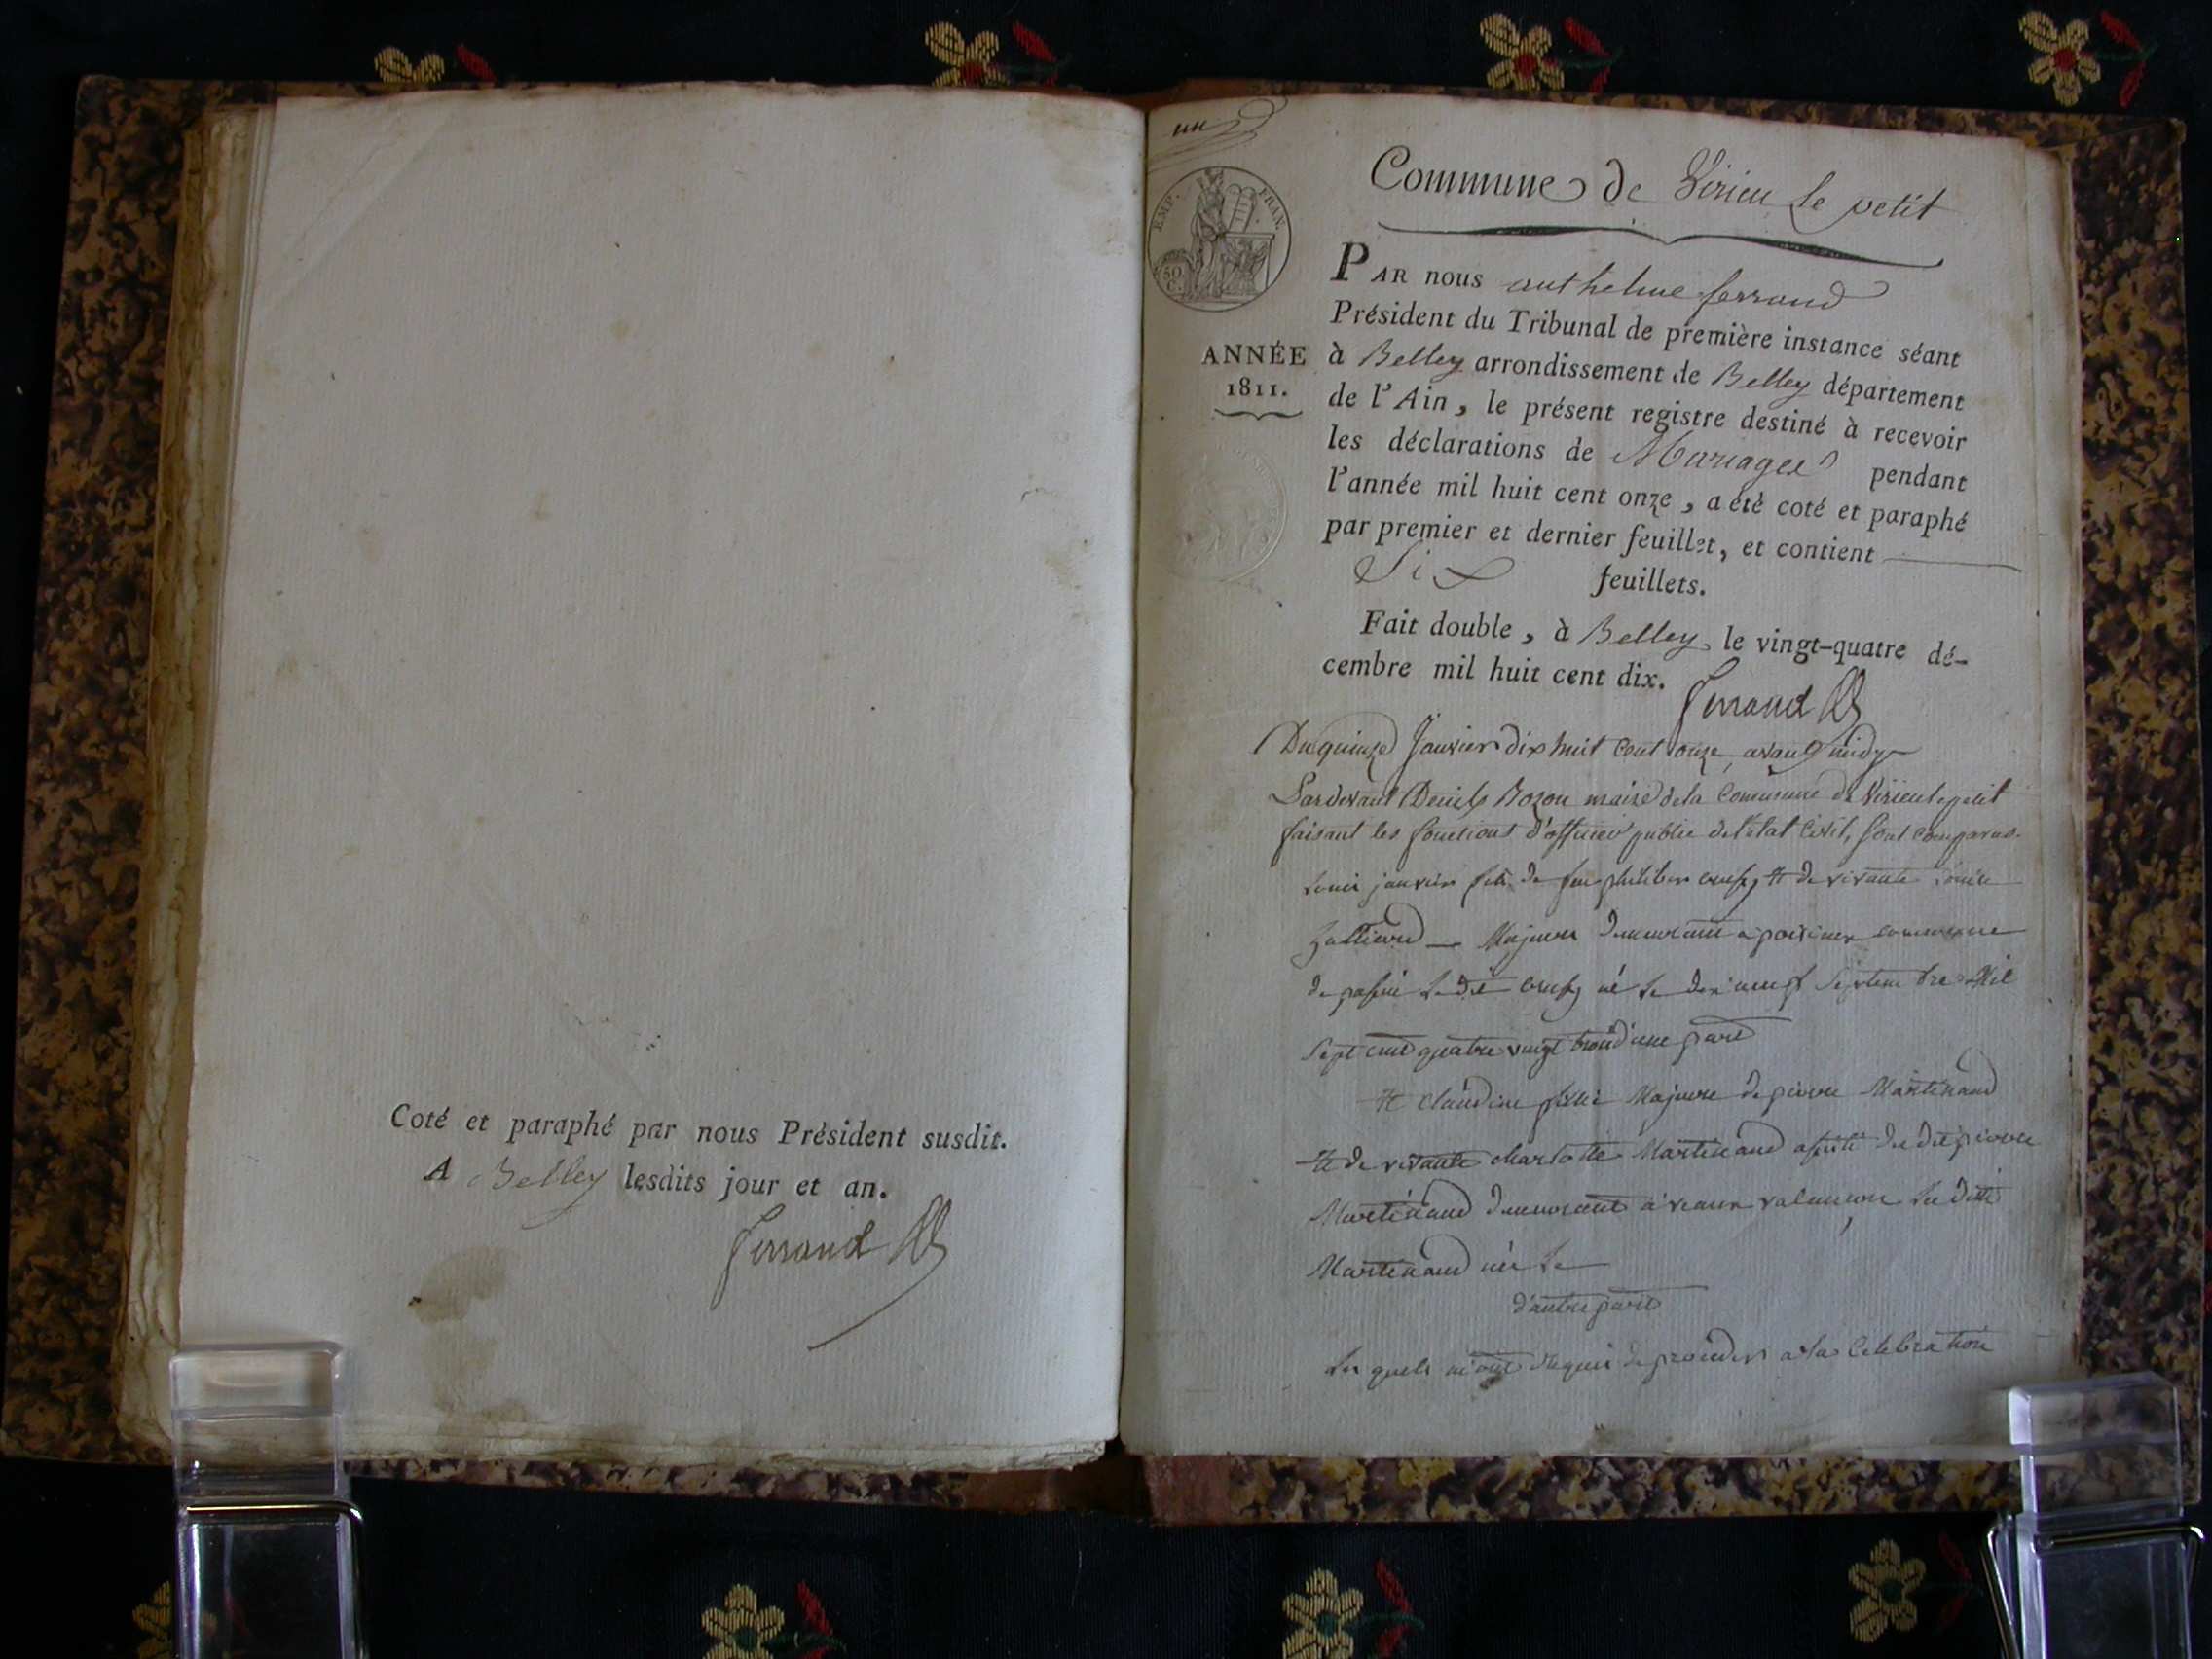 Coté et paraphé par nous Président susdit.
A Belley lesdits jour et an.
Ferrand
un
EMP. FRAN.
50 C.
Commune de Virieu le petit
ANNÉE
1811.
PAR nous anthelme ferrand
Président du Tribunal de première instance séant
à Belley arrondissement de Belley département
de l'Ain, le présent registre destiné à recevoir
les déclarations de Mariages pendant
l'année mil huit cent onze, a été coté et paraphé
par premier et dernier feuillet, et contient
Six feuillets.
Fait double, à Belley le vingt-quatre dé-
cembre mil huit cent dix.
Ferrand
Du quinze Janvier dix huit Cent onze, avant midy
Pardevant Denis Bozon maire de la Commune de Virieu le petit
faisant les fonctions d'officier public de l'état Civil, sont comparus
Louis janvier fils de feu philiber et de vivante
Majeur demeurant a commune
de le dit né le dix neuf Septembre Mil
Sept cent quatre vingt trois d'une part
et Claudine fille Majeure de pierre Martinand
et de vivante charlotte Martinand du dit pierre
Martinand demeurant a la ditte
Martinand née le
d'autre part
Les quels m'ont requis de proceder a la Celebration